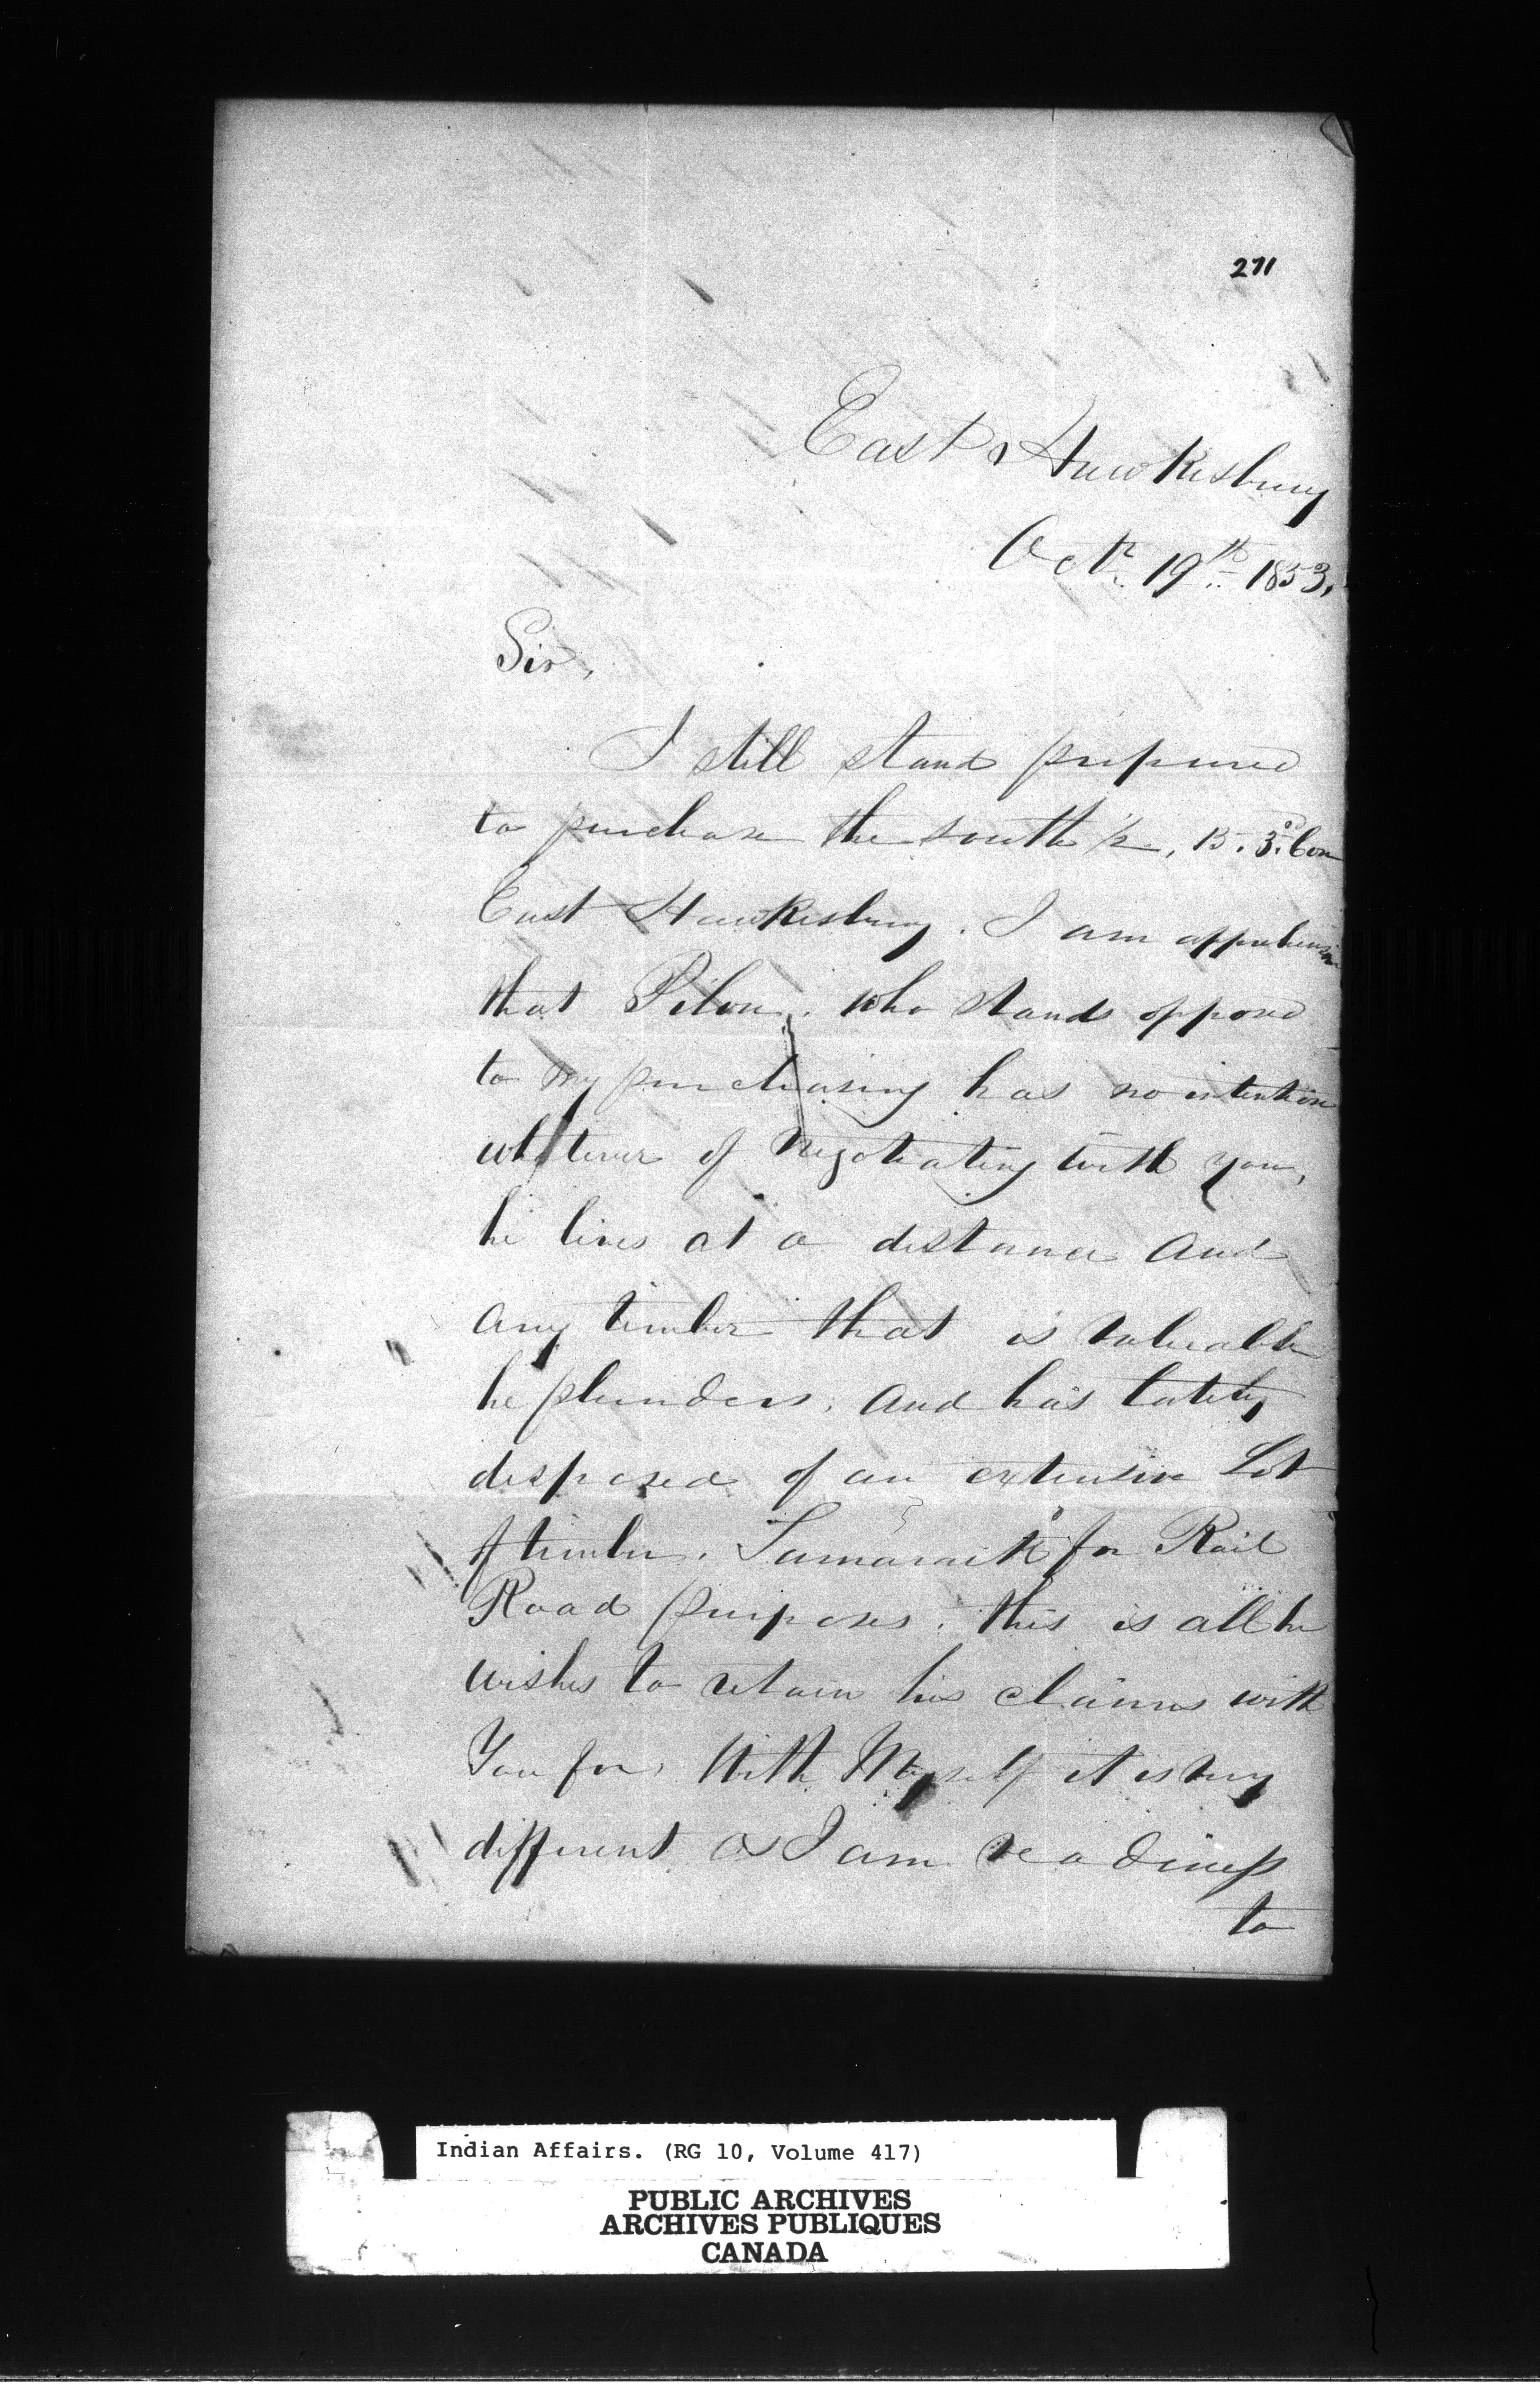 271
East Hawkesbury
Octr. 19th 1853,
Sir,
I still stand prepared
to purchase the South 1/2, 15. 3d. Con
East Hawkesbury. I am apprehensive
that Pilon. who stands opposed
to my purchasing has no intention
whatever of Negotiating with you,
he lives at a distance and
any timber that is valuable
he plunders. and has lately
disposed of an extensive Lot
of timber. Tamarack for Rail
Road purposes. this is all he
wishes to retain his claims with
You for. With Myself it is very
different as I am readiness
to
Indian Affairs. (RG 10, Volume 417)
PUBLIC ARCHIVES
ARCHIVES PUBLIQUES
CANADA